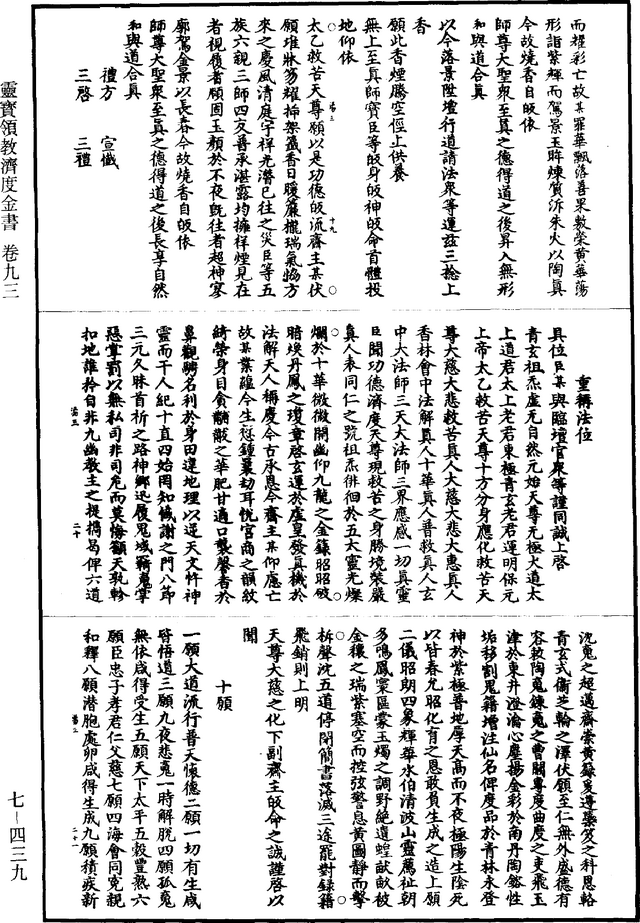 靈寶領教濟度金書 卷九三
七－四三九
而耀彩亡故某羅華飄落善果敷榮黃華蕩
形詣紫輝而駕景玉眸煉質泝朱火以陶真
今故燒香自皈依
師尊大聖衆至真之德得道之後昇入無形
和與道合真
以今落景陞壇行道請法衆等運玆三捻上
香
願此香煙騰空徑上供養
無上至真師寶臣等皈身皈神皈命首體投
地仰依
太乙救苦天尊願以是功德皈流齋主某伏
願堆牀笏耀揷架籤香日暖簾櫳瑞氣協方
來之慶風清庭宇祥光潛已往之災臣等五
族六親三師四友普承湛露均擁祥煙見在
者視履者願固玉顏於不夜旣往者超神寥
廓駕金景以長春今故燒香自皈依
師尊大聖衆至真之德得道之後長享自然
和與道合真
禮方 宣懺
三啓 三禮
重稱法位
具位臣某與臨壇官衆等謹同誠上啓
青玄祖炁虛无自然元始天尊无極大道太
上道君太上老君東極青玄老君運明保元
上帝太乙救苦天尊十方分身應化救苦天
尊大慈大悲救苦真人大慈大悲大惠真人
香林會中法解真人十華真人普救真人玄
中大法師三天大法師三界應感一切真靈
臣聞功德濟度天尊現救苦之身勝境裝嚴
真人表同仁之號祖炁徘徊於五大靈光燦
爛於十華微微開幽仰九龍之金籙昭昭破
暗煥丹鳳之瓊章啓玄運於虛皇發真機於
法解天人稱慶今古承恩今齋主某仰慮亡
故某業羅今生愆鍾曩劫耳恱宮商之韻紋
綺榮身目貪黼黻之華肥甘適口襲馨香於
鼻觀騁名利於身田違地理以逆天文忤神
靈而干人紀十直四始罔知懺謝之門八節
三元久昧首祈之路神鄉迅履鬼域羇魂掌
惡掌罰以無私司非司危而莫悔籲天孔軫
扣地誰矜自非九幽教主之提攜曷俾六道
沈䰟之超邁齋崇黃籙爰遵藥笈之科恩輅
青玄式衞芝輪之澤伏願至仁無外盛德有
容敕陶䰟鍊䰟之曹闢專度曲度之吏飛玉
津於東井澄瀹心塵揚金彩於南丹陶鎔性
垢移割鬼籍增注仙名俾度品於青林永登
神於紫極普地厚天高而不夜極陽生陰死
以皆春允昭化育之恩敢負生成之造上願
二儀昭朗四象輝華水伯清波山靈薦祉朝
多鳴鳳寰區蒙玉燭之調野絶遺蝗畎畝被
金穰之瑞紫塞空而控弦警息黃圖靜而擊
柝聲沈五道停閉簡書落滅三塗罷對錄籍
飛銷則上明
天尊大慈之化下副齋主皈命之誠謹啓以
聞
十願
一願大道流行普天懷德二願一切有生咸
啓悟道三願九夜悲䰟一時解脫四願孤䰟
無依咸得受生五願天下太平五穀豐熟六
願臣忠子孝君仁父慈七願四海會同寃親
和釋八願潛胞處卵咸得生成九願積疾新